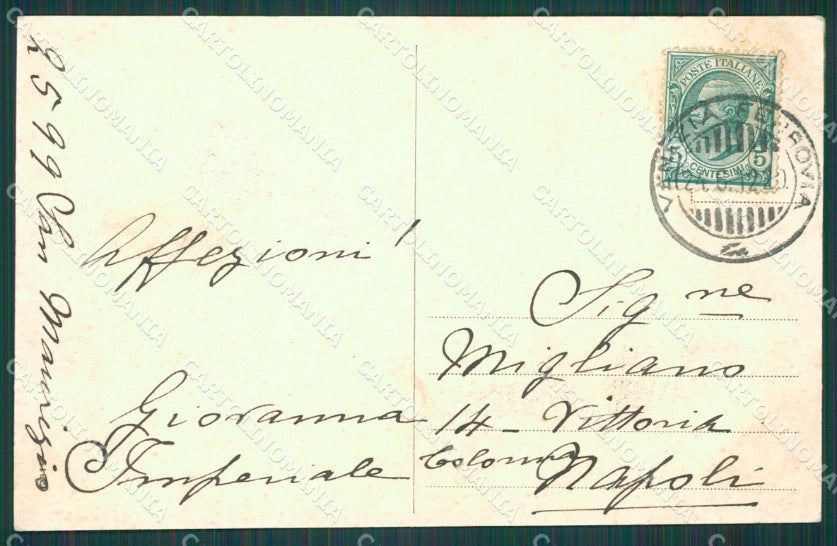 2599 San Maurizio
POSTE ITALIANE
5
CENTESIMI
FERROVIA
Affezioni!
Giovanna
Imperiale
Sig ne
Migliano
14 - Vittoria
Colonna
Napoli
CARTOLINOMANIA